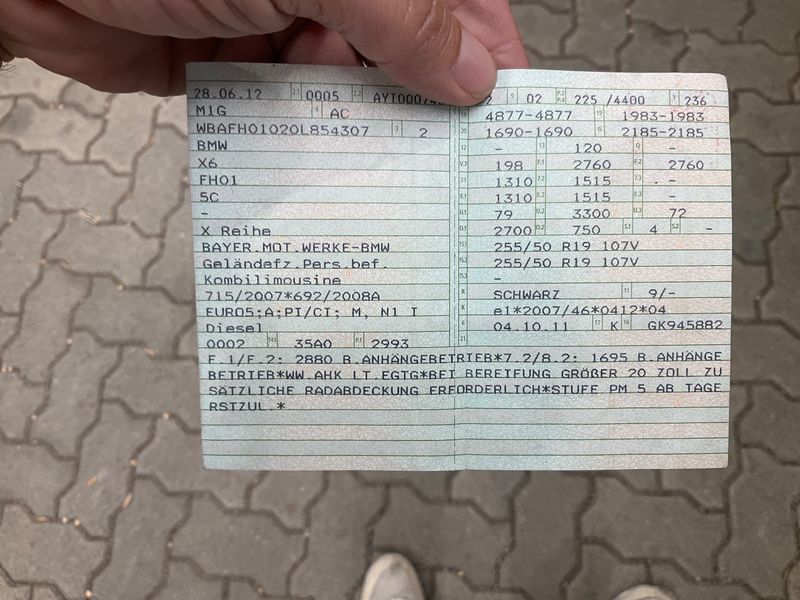 28.06.12 2.1 0005 2.2 AYT000/ 2 02 P.2 P.4 225 /4400 T 236
M1G 4 AC 4877-4877 19 1983-1983
WBAFH01020L854307 3 2 20 1690-1690 G 2185-2185
BMW 12 - 13 120 Q -
X6 V.7 198 F.1 2760 F.2 2760
FH01 7.1 1310 7.2 1515 7.3 -
5C 8.1 1310 8.2 1515 8.3 -
- U.1 79 U.2 3300 U.3 72
X Reihe O.1 2700 O.2 750 S.1 4 S.2 -
BAYER.MOT.WERKE-BMW 15.1 255/50 R19 107V
Geländefz.Pers.bef. 15.2 255/50 R19 107V
Kombilimousine 15.3 -
715/2007*692/2008A R SCHWARZ 11 9/-
EURO5;A;PI/CI; M, N1 I K e1*2007/46*0412*04
Diesel 6 04.10.11 17 K 16 GK945882
0002 14.1 35A0 P.1 2993 21
F.1/F.2: 2880 B.ANHÄNGEBETRIEB*7.2/8.2: 1695 B.ANHÄNGE
BETRIEB*WW.AHK LT.EGTG*BEI BEREIFUNG GRÖßER 20 ZOLL ZU
SÄTZLICHE RADABDECKUNG ERFORDERLICH*STUFE PM 5 AB TAG E
RSTZUL.*